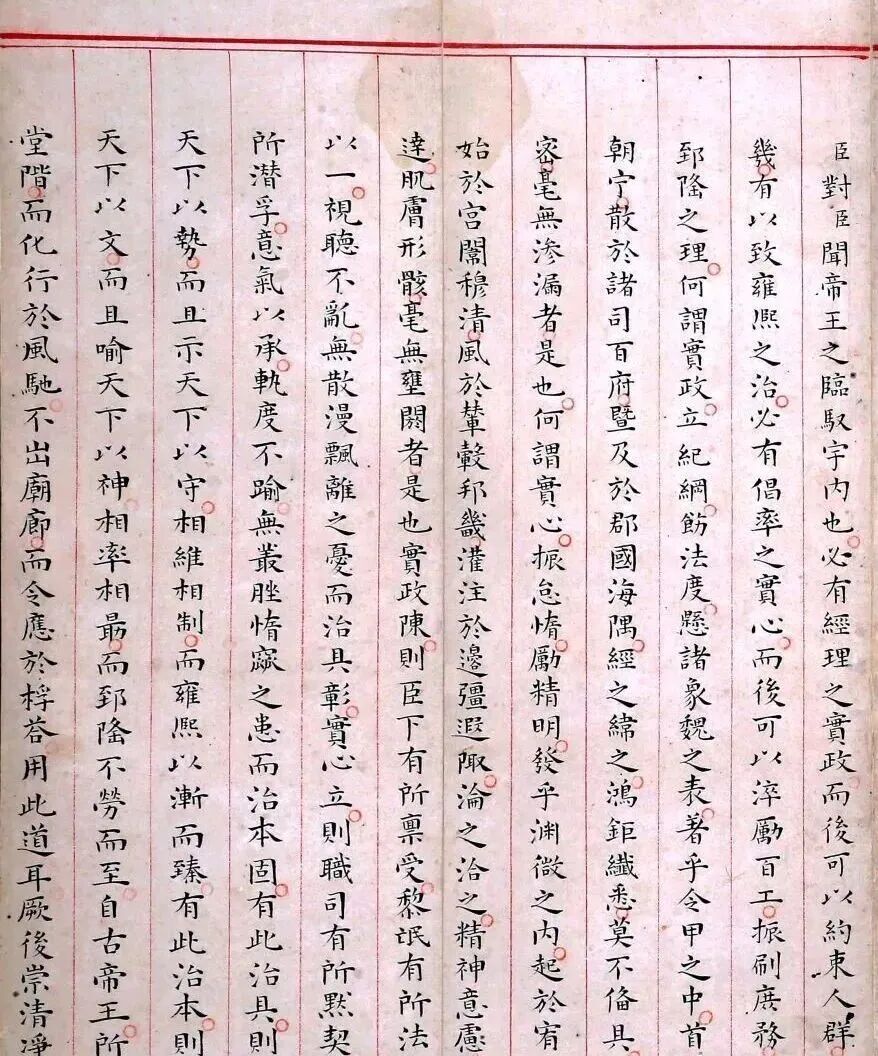 臣對臣聞帝王之臨馭宇内也必有經理之實政而後可以約束人群
幾有以致雍熙之治必有倡率之實心而後可以淬勵百工振刷庶務
郅隆之理何謂實政立紀綱飭法度懸諸象魏之表著乎令甲之中首
朝宁散於諸司百府暨及於郡國海隅經之緯之鴻鉅纖悉莫不俻具
宻毫無滲漏者是也何謂實心振怠惰勵精明發乎淵微之内起於宥
始於宫闈穆清風於輦轂邦畿灌注於邊疆遐陬淪之洽之精神意慮
逹肌膚形骸毫無壅閼者是也實政陳則臣下有所禀受黎氓有所法
以一視聽不亂無散漫飄離之憂而治具彰實心立則職司有所黙契
所潜孚意氣以承軌度不踰無叢脞惰窳之患而治本固有此治具則
天下以勢而且示天下以守相維相制而雍熙以漸而臻有此治本則
天下以文而且喻天下以神相率相朂而郅隆不勞而至自古帝王所
堂階而化行於風馳不出廟廊而令應於桴荅用此道耳厥後崇清凈